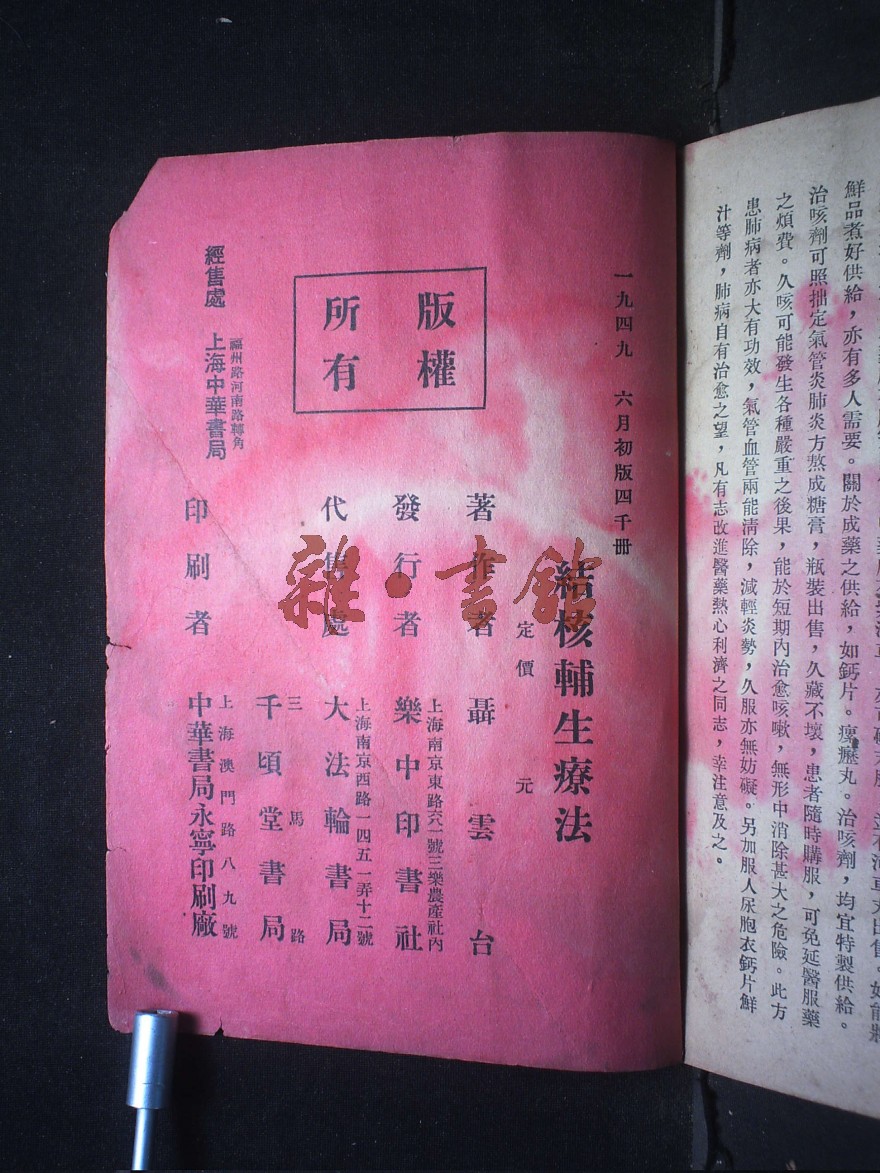 鮮品煮好供給，亦有多人需要。關於成藥之供給，如鈣片。瘰癧丸。治咳劑，均宜特製供給。
治咳劑可照拙定氣管炎肺炎方熬成糖膏，瓶裝出售，久藏不壞，患者隨時購服，可免延醫服藥
之煩費。久咳可能發生各種嚴重之後果，能於短期內治愈咳嗽，無形中消除甚大之危險。此方
患肺病者亦大有功效，氣管血管兩能清除，減輕炎勢，久服亦無妨礙。另加服人尿胞衣鈣片鮮
汁等劑，肺病自有治愈之望，凡有志改進醫藥熱心利濟之同志，幸注意及之。
一九四九 六月初版四千冊
結核輔生療法
定價 元
著作者 聶雲台
上海南京東路六一號三樂農產社內
發行者 樂中印書社
上海南京西路一四五一弄十二號
代售處 大法輪書局
三馬路
千頃堂書局
上海澳門路八九號
印刷者 中華書局永寧印刷廠
版權
所有
福州路河南路轉角
經售處 上海中華書局
雜·書館